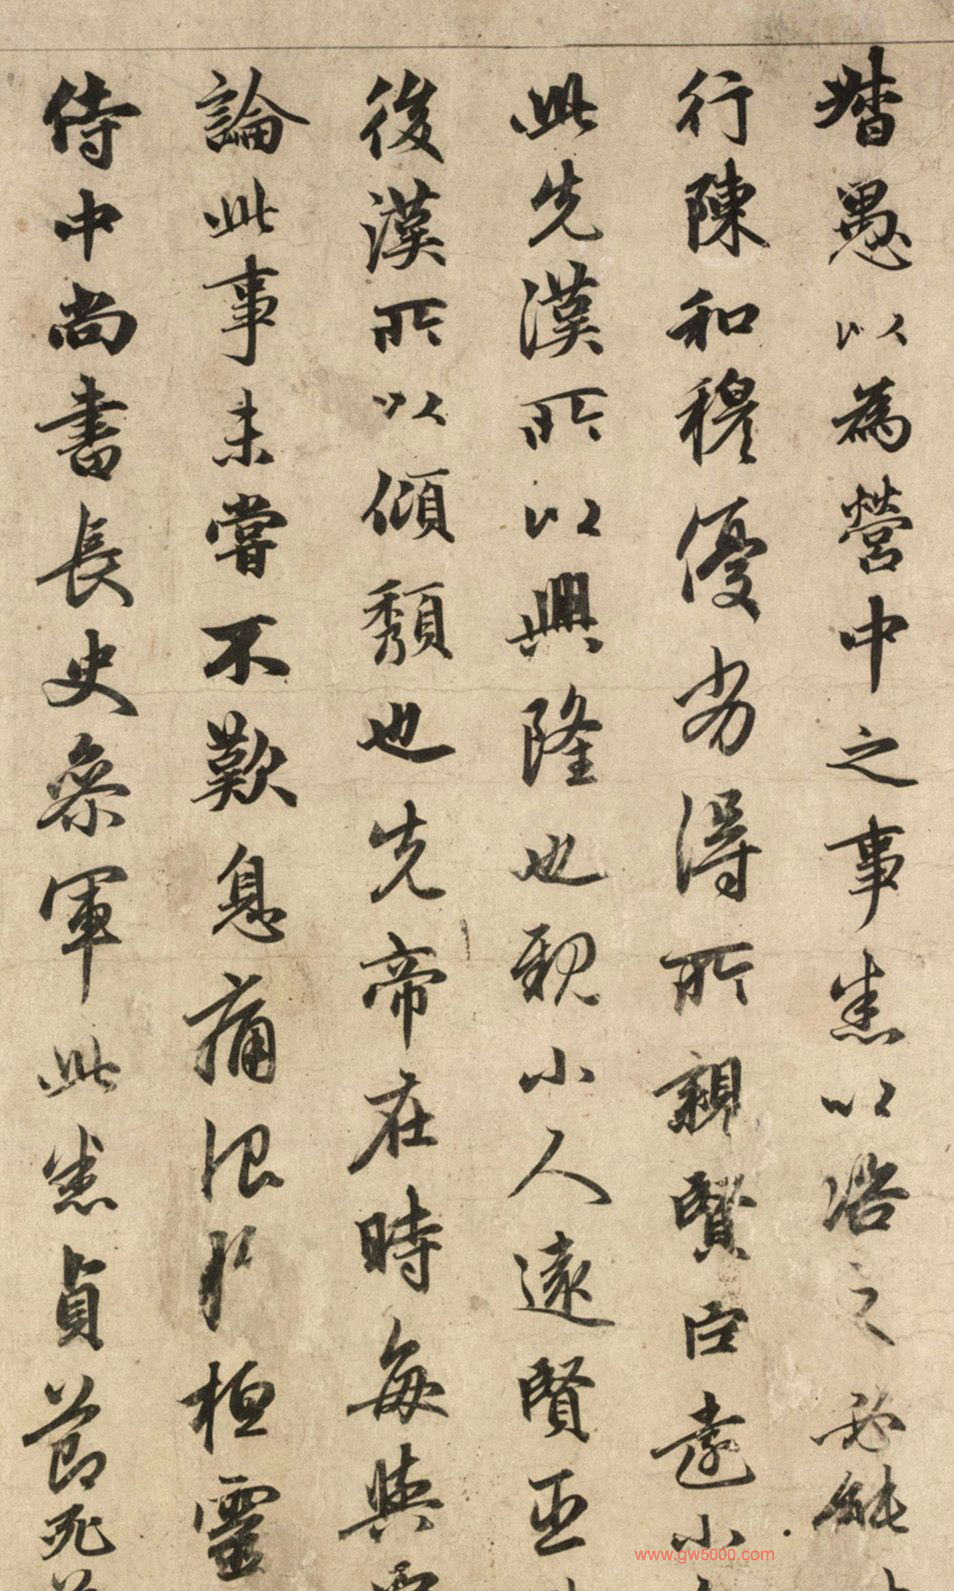 督愚以為營中之事悉以咨之必能
行陳和穆優劣得所親賢臣遠小
此先漢所以興隆也親小人遠賢臣
後漢所以傾頹也先帝在時每與
論此事未嘗不歎息痛恨於桓靈
侍中尚書長史參軍此悉貞節死
www.gw5000.com